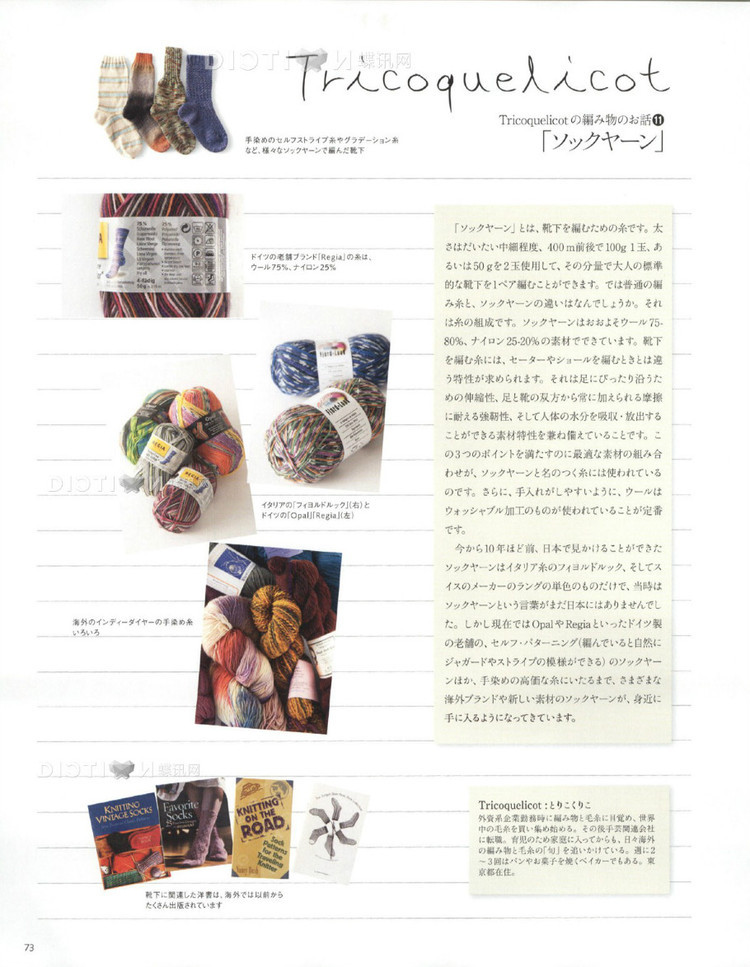 Tricoquelicot
Tricoquelicotの編み物のお話⓫
「ソックヤーン」
DICTION 蝶讯网
手染めのセルフストライプ糸やグラデーション糸
など、様々なソックヤーンで編んだ靴下
75%
25%
4-fädig
50 g
ドイツの老舗ブランド「Regia」の糸は、
ウール75%、ナイロン25%
REGIA
REGIA
DICTION
イタリアの「フィヨルドルック」(右)と
ドイツの「Opal」「Regia」(左)
海外のインディーダイヤーの手染め糸
いろいろ
「ソックヤーン」とは、靴下を編むための糸です。太
さはだいたい中細程度、400m前後で100g 1玉、あ
るいは50gを2玉使用して、その分量で大人の標準
的な靴下を1ペア編むことができます。では普通の編
み糸と、ソックヤーンの違いはなんでしょうか。それ
は糸の組成です。ソックヤーンはおおよそウール75-
80%、ナイロン25-20%の素材でできています。靴下
を編む糸には、セーターやショールを編むときとは違
う特性が求められます。それは足にぴったり沿うた
めの伸縮性、足と靴の双方から常に加えられる摩擦
に耐える強靭性、そして人体の水分を吸収・放出する
ことができる素材特性を兼ね備えていることです。こ
の3つのポイントを満たすのに最適な素材の組み合
わせが、ソックヤーンと名のつく糸には使われている
のです。さらに、手入れがしやすいように、ウールは
ウォッシャブル加工のものが使われていることが定番
です。
今から10年ほど前、日本で見かけることができた
ソックヤーンはイタリア糸のフィヨルドルック、そしてス
イスのメーカーのラングの単色のものだけで、当時は
ソックヤーンという言葉がまだ日本にはありませんでし
た。しかし現在ではOpalやRegiaといったドイツ製
の老舗の、セルフ・パターニング(編んでいると自然に
ジャガードやストライプの模様ができる)のソックヤー
ンほか、手染めの高価な糸にいたるまで、さまざまな
海外ブランドや新しい素材のソックヤーンが、身近に
手に入るようになってきています。
DICTION 蝶讯网
KNITTING
VINTAGE SOCKS
Favorite
Socks
KNITTING
ON THE
ROAD
Sock
Patterns
for the
Traveling
Knitter
Nancy Bush
靴下に関連した洋書は、海外では以前から
たくさん出版されています
Tricoquelicot:とりこくりこ
外資系企業勤務時に編み物と毛糸に目覚め、世界
中の毛糸を買い集め始める。その後手芸関連会社
に転職。育児のため家庭に入ってからも、日々海外
の編み物と毛糸の「旬」を追いかけている。週に2
〜3回はパンやお菓子を焼くベイカーでもある。東
京都在住。
73